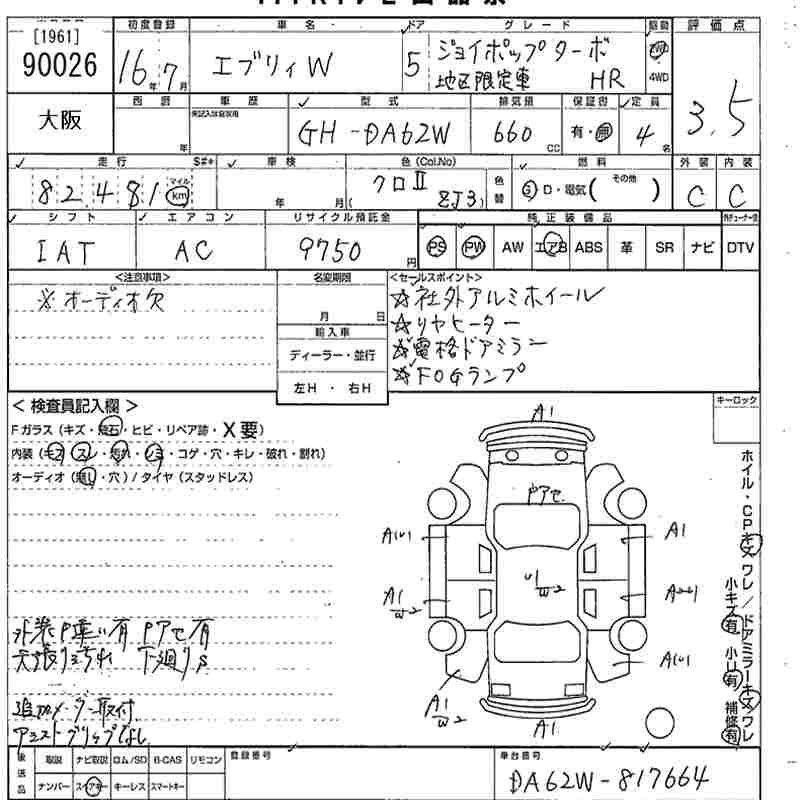 [1961]
90026
大阪
初度登録 車名 ドア グレード 駆動 評価点
16年7月 エブリィW 5 ジョイポップターボ
地区限定車 HR 4WD
3.5
西暦 車歴 型式 排気量 保証書 定員
年 GH-DA62W 660 CC 有・無 4名
走行 S#* 車検 色(Col,No) 燃料 外装 内装
82,481 マイル km 年 月 クロⅡ (ZJ3) 色替 G・D・電気( その他 ) C C
シフト エアコン リサイクル預託金 純正装備品
IAT AC 9750円 PS PW AW エアB ABS 革 SR ナビ DTV
<注意事項> 名変期限 <セールスポイント>
※オーディオ欠 月 日
☆社外アルミホイール
☆リヤヒーター
輸入車
☆電格ドアミラー
ディーラー・並行
☆FOGランプ
左H・右H
<検査員記入欄> キーロック
Fガラス(キズ・飛石・ヒビ・リペア跡・X要)
内装(キズ・スレ・汚れ・シミ・コゲ・穴・キレ・破れ・割れ)
オーディオ(無し・穴)/タイヤ(スタッドレス)
A1
Pアセ
A1
A1
W2
U1
W2
A1
W2
A1
ホイル・CPキズ ワレ/ドアミラーキズ ワレ
小キズ有 小U有 補修有
外装P悪い有 Pアセ有
天張り汚れ 下廻りS
追加メーター取付
アシストグリップなし
後送品 取説 ナビ取説 ロム/SD B-CAS リモコン 登録番号 車台番号
ナンバー スペアキー キーレス スマートキー DA62W-817664